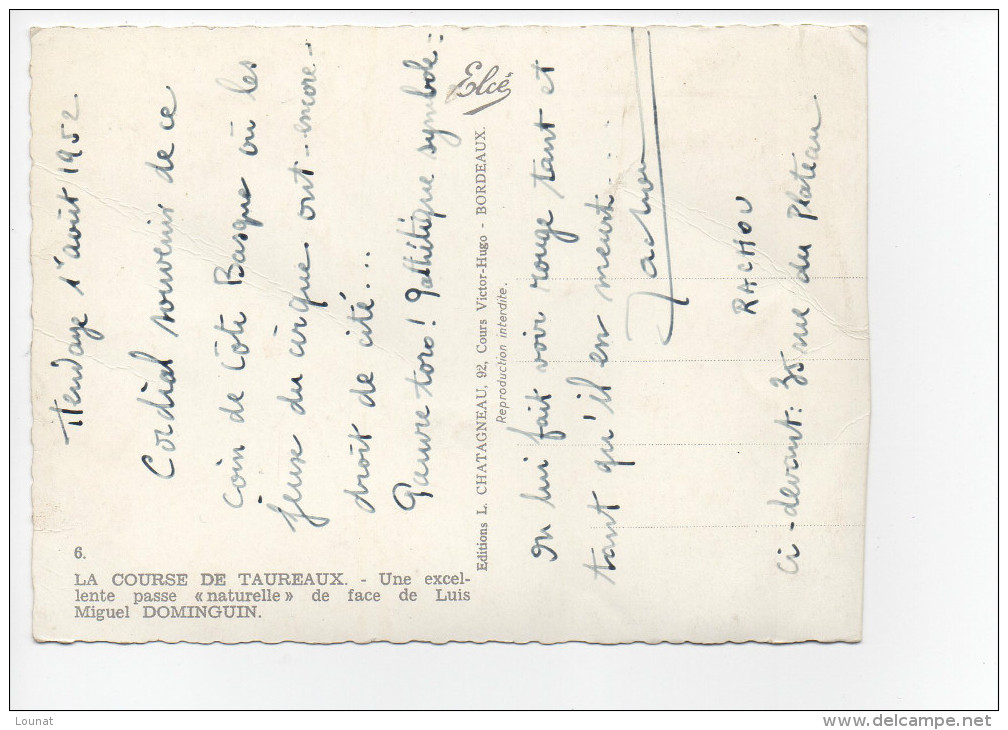 Hendaye 1er août 1952.
Cordial souvenir de ce
coin de Côte Basque où les
jeux du cirque ont - encore -
droit de cité...
Pauvre toro ! Pathétique symbole :
on lui fait voir rouge tant et
tant qu'il en meurt...
Rachou
RACHOU
Ci-devant : 35 rue du Plateau
6.
LA COURSE DE TAUREAUX. - Une excel-
lente passe « naturelle » de face de Luis
Miguel DOMINGUIN.
Elcé
Editions L. CHATAGNEAU, 92, Cours Victor-Hugo - BORDEAUX.
Reproduction interdite.
Lounat
www.delcampe.net